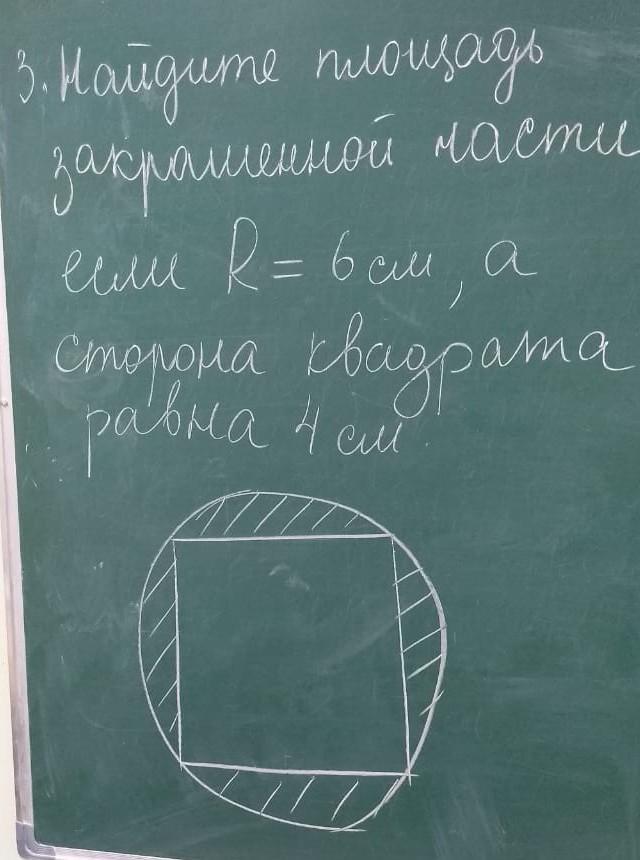 3. Найдите площадь
закрашенной части
если R = 6 см, а
сторона квадрата
равна 4 см.